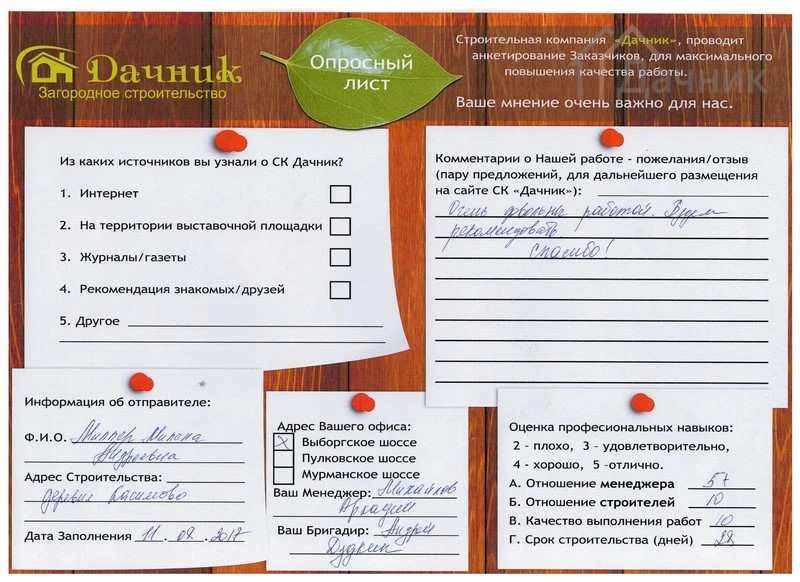 Дачник
Загородное строительство
Опросный
лист
Строительная компания «Дачник», проводит
анкетирование Заказчиков, для максимального
повышения качества работы.
Ваше мнение очень важно для нас.
Дачник
Из каких источников вы узнали о СК Дачник?
1. Интернет
2. На территории выставочной площадки
3. Журналы/газеты
4. Рекомендация знакомых/друзей
5. Другое
Комментарии о Нашей работе - пожелания/отзыв
(пару предложений, для дальнейшего размещения
на сайте СК «Дачник»):
Очень довольны работой. Будем
рекомендовать
Спасибо!
Информация об отправителе:
Ф.И.О. Миллер Милена
Андреевна
Адрес Строительства:
деревня Касимово
Дата Заполнения 11.08.2017
Адрес Вашего офиса:
X Выборгское шоссе
Пулковское шоссе
Мурманское шоссе
Ваш Менеджер: Михайлов
Аркадий
Ваш Бригадир: Андрей
Дудкин
Оценка професиональных навыков:
2 - плохо, 3 - удовлетворительно,
4 - хорошо, 5 -отлично.
А. Отношение менеджера 5+
Б. Отношение строителей 10
В. Качество выполнения работ 10
Г. Срок строительства (дней) 28